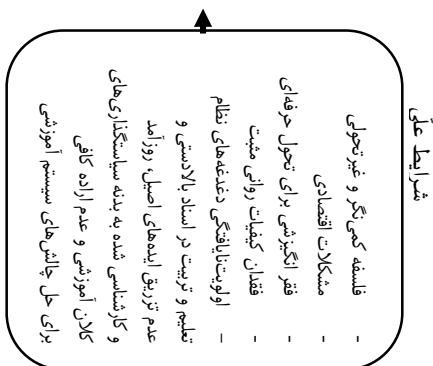 شرایط علّی
- فلسفه کمی‌نگر و غیرتحولی
- مشکلات اقتصادی
- فقر انگیزشی برای تحول حرفه‌ای
- فقدان کیفیات روانی مثبت
- اولویت‌نایافتگی دغدغه‌های نظام
تعلیم و تربیت در اسناد بالادستی و
عدم تزریق ایده‌های اصیل، روزآمد
و کارشناسی شده به بدنه سیاستگذاری‌های
کلان آموزشی و عدم اراده کافی
برای حل چالش‌های سیستم آموزشی